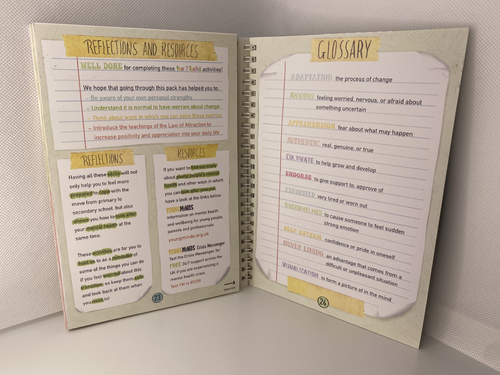 REFLECTIONS AND RESOURCES
WELL DONE for completing these activities!
We hope that going through this pack has helped you to...
- Be aware of your own personal strengths
- Understand it is normal to have worries about change
- Think about ways in which you can ease those worries
- Introduce the teachings of the Law of Attraction to
increase positivity and appreciation into your daily life.
REFLECTIONS
Having all these will not
only help you to feel more
prepared to cope with the
move from primary to
secondary school, but also
you how to after
your mental health at the
same time.
These are for you to
to as a of
some of the things you can do
if you feel about this
so keep them
and look back at them when
you to!
RESOURCES
If you want to find out more
about mental
health and other ways in which
you can
have a look at the links below:
YOUNG MINDS
Information on mental health
and wellbeing for young people,
parents and professionals
youngminds.org.uk
YOUNG MINDS Crisis Messenger
Text the Crisis Messenger for
FREE 24/7 support across the
UK if you are experiencing a
mental health crisis
Text YM to 85258
23
GLOSSARY
ADAPTATION: the process of change
ANXIOUS: feeling worried, nervous, or afraid about
something uncertain
APPREHENSION: fear about what may happen
AUTHENTIC: real, genuine, or true
CULTIVATE: to help grow and develop
ENDORSE: to give support to, approve of
EXHAUSTED: very tired or worn out
OVERWHELMED: to cause someone to feel sudden
strong emotion
SELF ESTEEM: confidence or pride in oneself
SILVER LINING: an advantage that comes from a
difficult or unpleasant situation
VISUALIZATION: to form a picture of in the mind
24